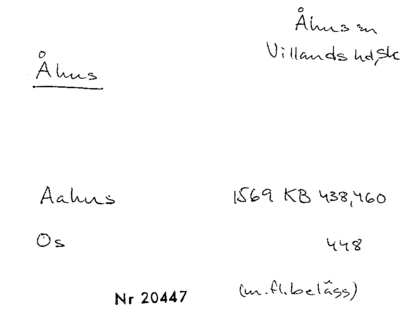 Åhus sn
Villands hd, Sk
Åhus
Aahus 1569 KB 438,460
Os 448
Nr 20447 (m.fl. belägg)